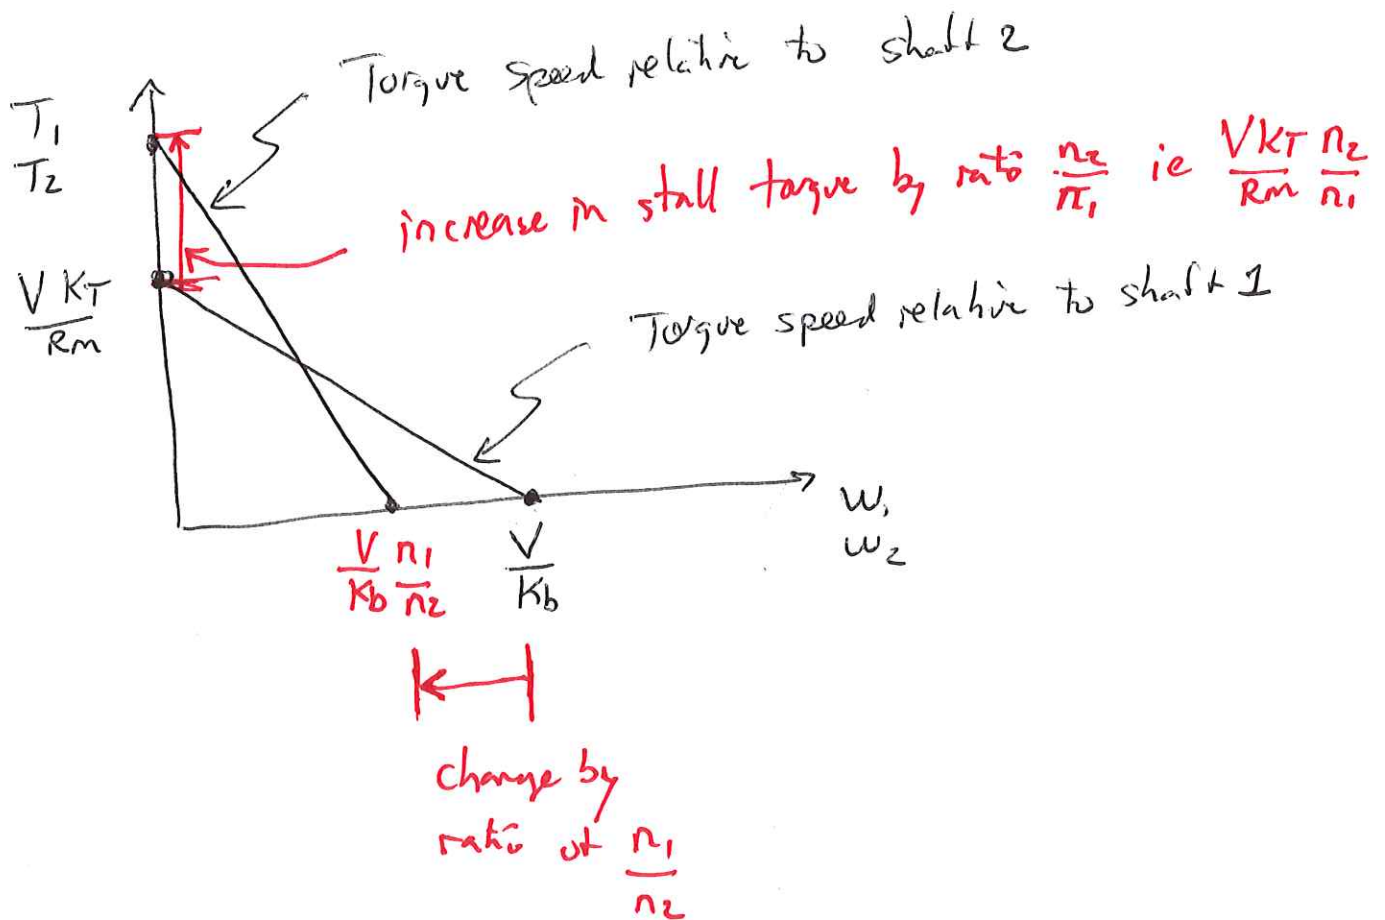 Torque speed relative to shaft 2
T1
T2
increase in stall torque by ratio n2/n1 ie VKT/Rm n2/n1
VKT/Rm
Torque speed relative to shaft 1
W1
W2
V/Kb n1/n2
V/Kb
change by
ratio of n1/n2